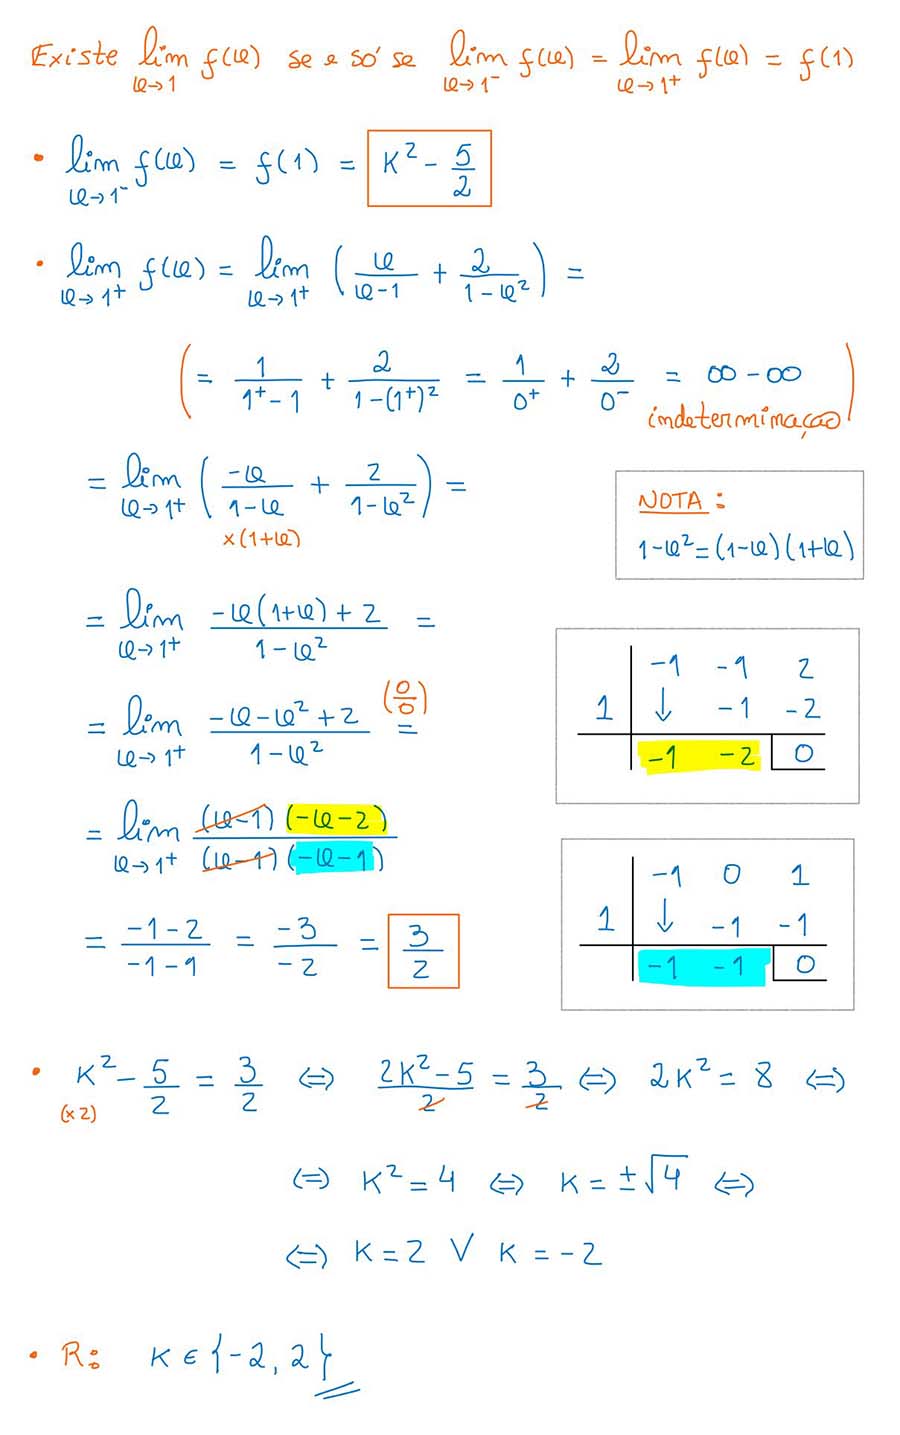 Existe lim f(x) se e só se lim f(x) = lim f(x) = f(1)
x→1 x→1⁻ x→1⁺
• lim f(x) = f(1) = K² - 5/2
x→1⁻
• lim f(x) = lim (x/(x-1) + 2/(1-x²)) =
x→1⁺ x→1⁺
(= 1/(1⁺-1) + 2/(1-(1⁺)²) = 1/0⁺ + 2/0⁻ = ∞ - ∞)
indeterminação
= lim (-x/(1-x) + 2/(1-x²)) =
x→1⁺ ×(1+x)
NOTA:
1-x² = (1-x)(1+x)
= lim (-x(1+x)+2)/(1-x²) =
x→1⁺
= lim (-x-x²+2)/(1-x²) (0/0) =
x→1⁺
-1 -1 2
1 ↓ -1 -2
-1 -2 0
= lim (x-1)(-x-2)/(x-1)(-x-1)
x→1⁺
-1 0 1
1 ↓ -1 -1
-1 -1 0
= (-1-2)/(-1-1) = -3/-2 = 3/2
• K² - 5/2 = 3/2 ⇔ (2K²-5)/2 = 3/2 ⇔ 2K² = 8 ⇔
(×2)
⇔ K² = 4 ⇔ K = ±√4 ⇔
⇔ K = 2 ∨ K = -2
• R: K ∈ {-2, 2}